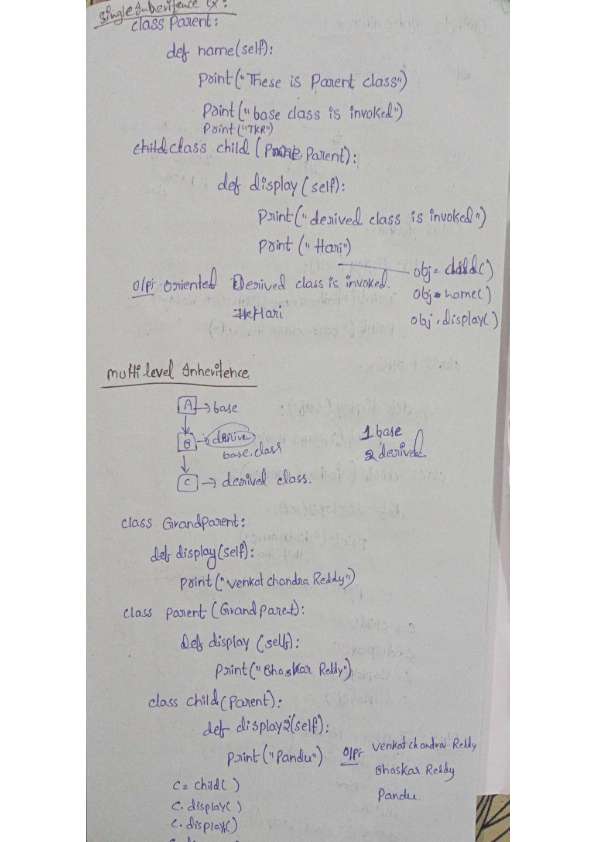 Single Inheritence Ex:
class Parent:
def name(self):
Print("These is Parent class")
Print("base class is invoked")
Print("TKR")
class child (Parent):
def display (self):
Print("derived class is invoked")
Print ("Hari")
obj = child()
O/p: oriented Derived class is invoked.
obj.name()
Hari
obj.display()
multi level Inheritence
A → base
B → derive
base class
1 base
2 derived
C → derived class.
class GrandParent:
def display(self):
Print("Venkat chandra Reddy")
class Parent (GrandParet):
def display (self):
Print("Bhaskar Reddy")
class child(Parent):
def display2(self):
Print("Pandu") O/p: Venkat chandra Reddy
Bhaskar Reddy
Pandu
c = child( )
c. display( )
c. display()